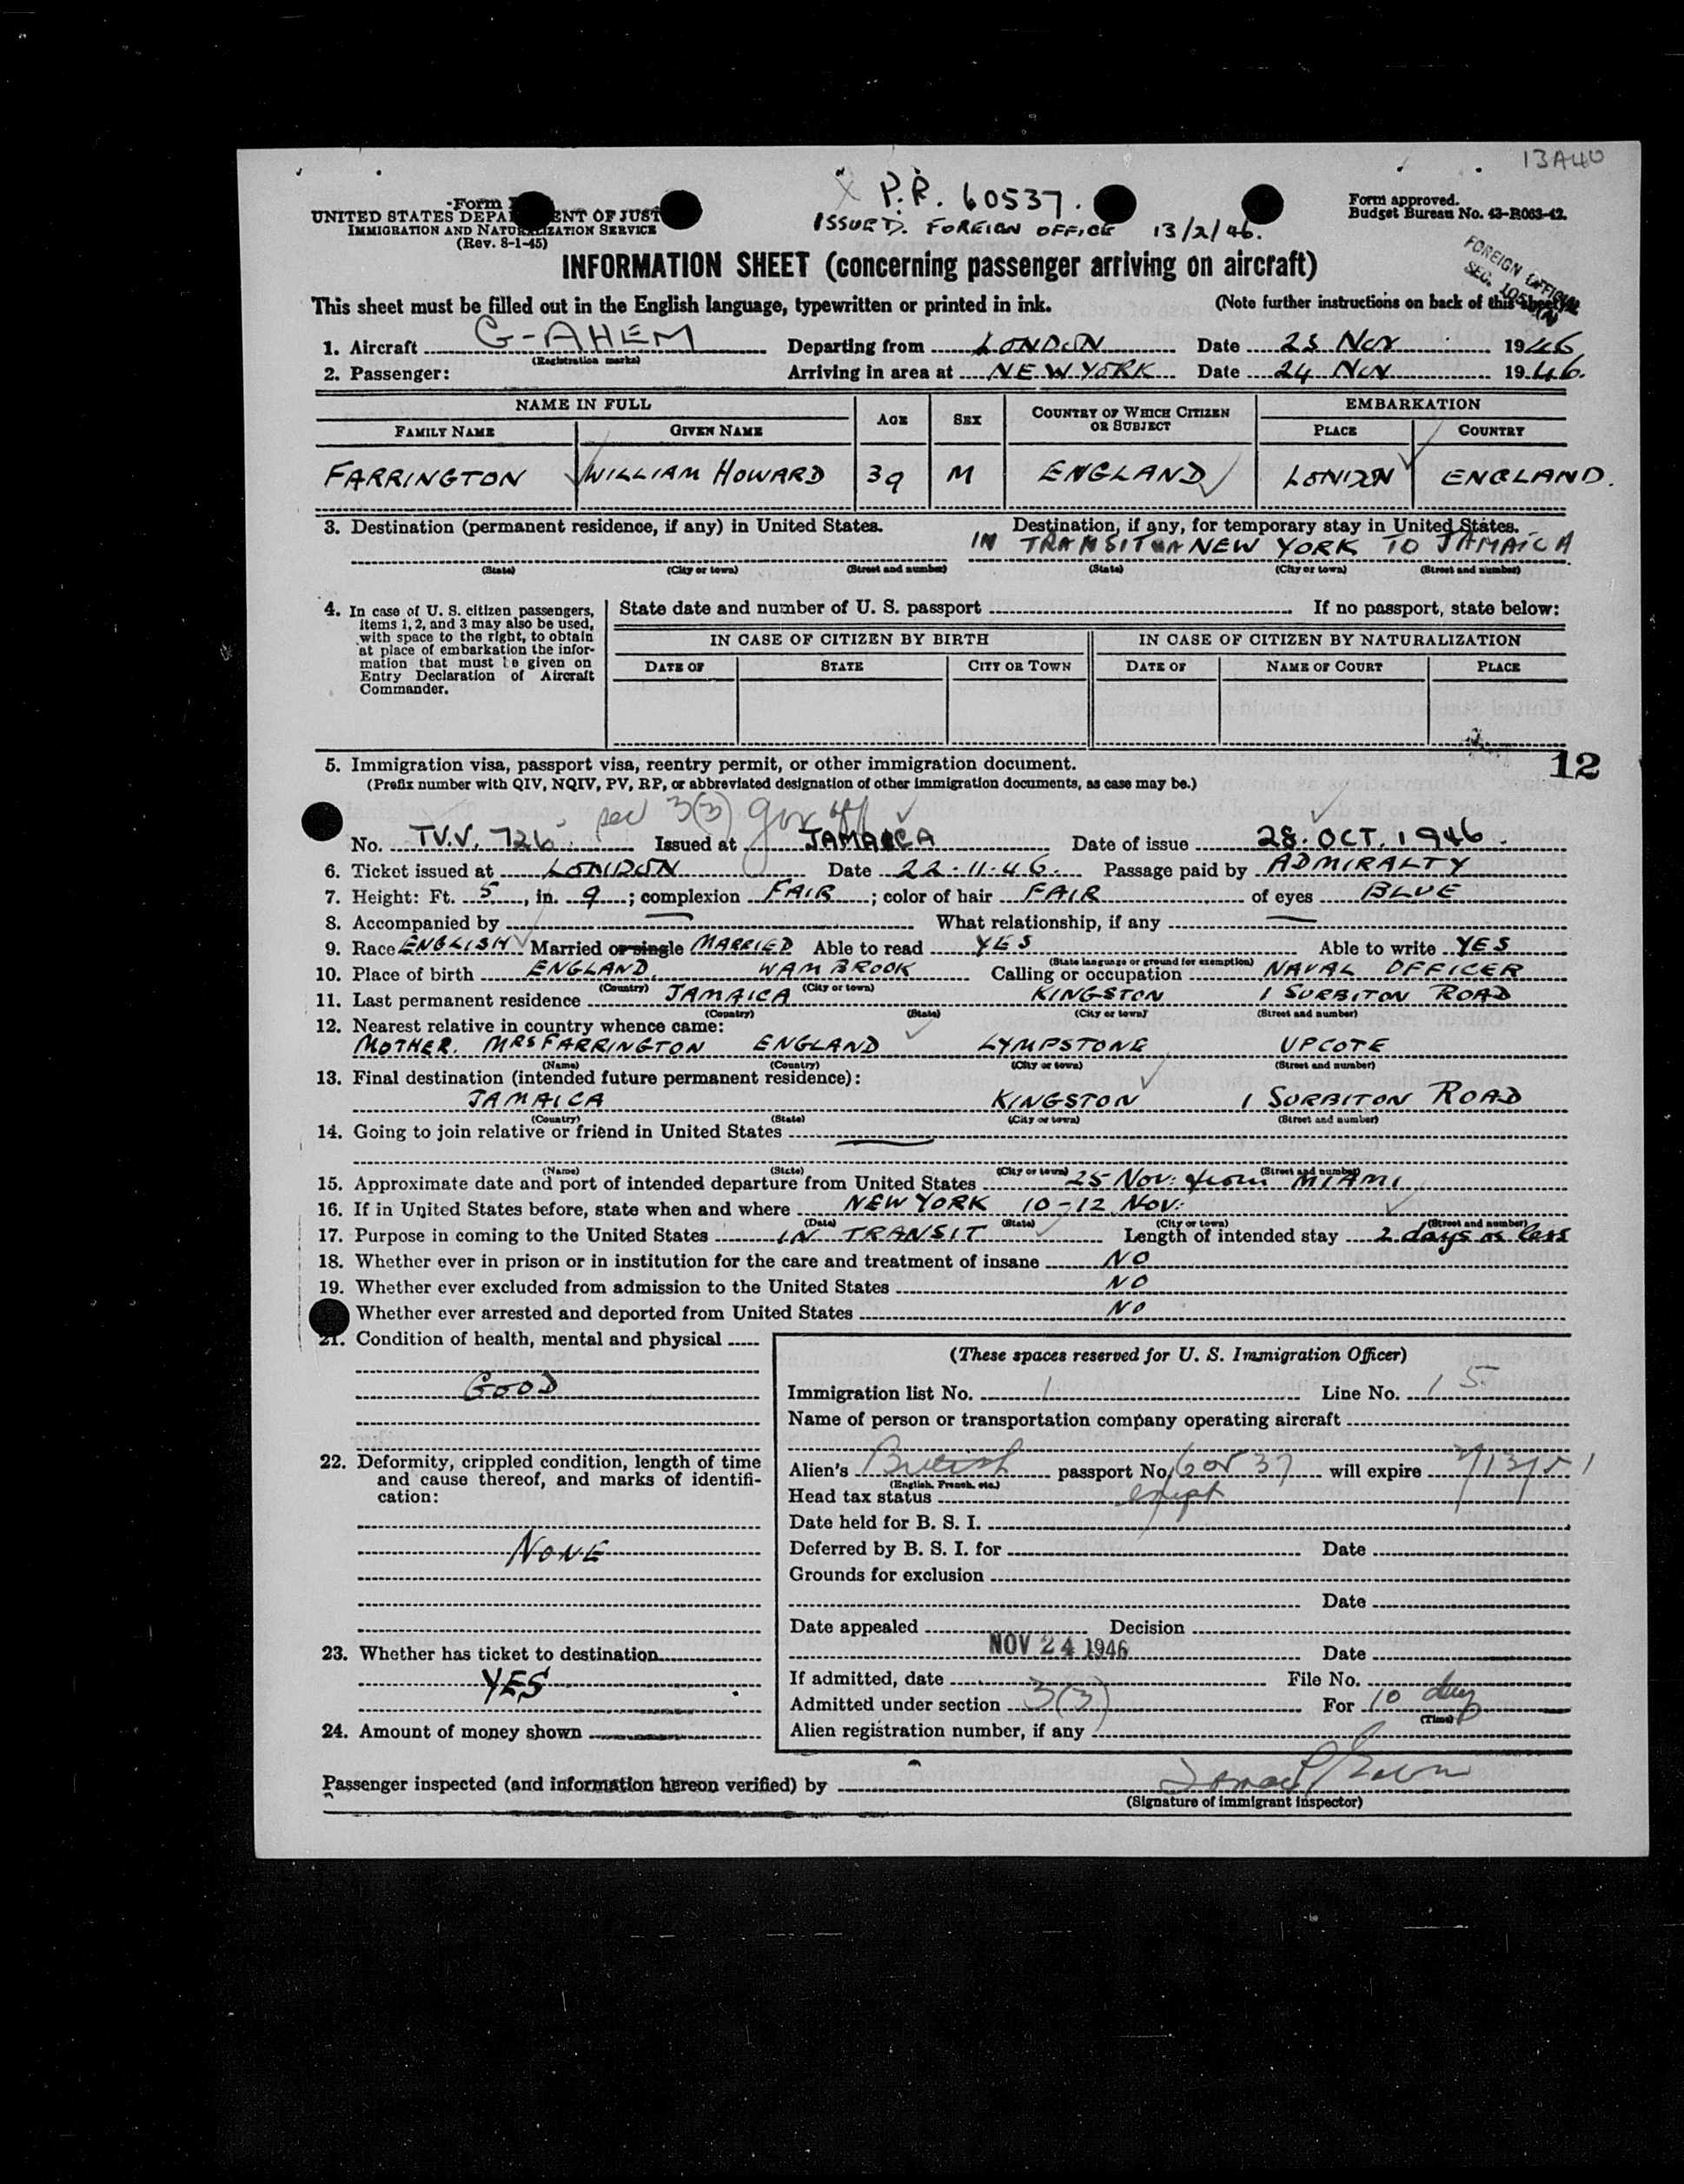 13A40
X P.P. 60537.
ISSUED. FOREIGN OFFICE 13/2/46.
Form
UNITED STATES DEPARTMENT OF JUST
IMMIGRATION AND NATURALIZATION SERVICE
(Rev. 8-1-45)
Form approved.
Budget Bureau No. 43-R063-42.
FOREIGN OFFICIAL
SEC.
INFORMATION SHEET (concerning passenger arriving on aircraft)
This sheet must be filled out in the English language, typewritten or printed in ink. (Note further instructions on back of this sheet)
1. Aircraft G-AHEM Departing from LONDON Date 23 Nov 1946
(Registration marks)
2. Passenger: Arriving in area at NEW YORK Date 24 Nov 1946.
NAME IN FULL AGE SEX COUNTRY OF WHICH CITIZEN OR SUBJECT EMBARKATION
FAMILY NAME GIVEN NAME PLACE COUNTRY
FARRINGTON WILLIAM HOWARD 39 M ENGLAND LONDON ENGLAND.
3. Destination (permanent residence, if any) in United States. Destination, if any, for temporary stay in United States.
IN TRANSIT NEW YORK TO JAMAICA
(State) (City or town) (Street and number) (State) (City or town) (Street and number)
4. In case of U. S. citizen passengers, items 1, 2, and 3 may also be used, with space to the right, to obtain at place of embarkation the information that must be given on Entry Declaration of Aircraft Commander.
State date and number of U. S. passport If no passport, state below:
IN CASE OF CITIZEN BY BIRTH IN CASE OF CITIZEN BY NATURALIZATION
DATE OF STATE CITY OR TOWN DATE OF NAME OF COURT PLACE
12
5. Immigration visa, passport visa, reentry permit, or other immigration document.
(Prefix number with QIV, NQIV, PV, RP, or abbreviated designation of other immigration documents, as case may be.)
sec 3(3) gov off
No. T.V.V. 726 Issued at JAMAICA Date of issue 28. OCT. 1946.
6. Ticket issued at LONDON Date 22.11.46. Passage paid by ADMIRALTY
7. Height: Ft. 5, in. 9; complexion FAIR; color of hair FAIR of eyes BLUE
8. Accompanied by — What relationship, if any —
9. Race ENGLISH Married or single MARRIED Able to read YES Able to write YES
(State language or ground for exemption)
10. Place of birth ENGLAND, WAMBROOK Calling or occupation NAVAL OFFICER
(Country) (City or town)
11. Last permanent residence JAMAICA KINGSTON 1 SURBITON ROAD
(Country) (State) (City or town) (Street and number)
12. Nearest relative in country whence came:
MOTHER. MRS FARRINGTON ENGLAND LYMPSTONE UPCOTE
(Name) (Country) (City or town) (Street and number)
13. Final destination (intended future permanent residence):
JAMAICA KINGSTON 1 SURBITON ROAD
(Country) (State) (City or town) (Street and number)
14. Going to join relative or friend in United States —
(Name) (State) (City or town) (Street and number)
15. Approximate date and port of intended departure from United States 25 Nov: from MIAMI
16. If in United States before, state when and where NEW YORK 10-12 Nov:
(Date) (State) (City or town) (Street and number)
17. Purpose in coming to the United States IN TRANSIT Length of intended stay 2 days or less
18. Whether ever in prison or in institution for the care and treatment of insane NO
19. Whether ever excluded from admission to the United States NO
Whether ever arrested and deported from United States NO
21. Condition of health, mental and physical
GOOD
22. Deformity, crippled condition, length of time and cause thereof, and marks of identification:
NONE
23. Whether has ticket to destination
YES
24. Amount of money shown
(These spaces reserved for U. S. Immigration Officer)
Immigration list No. 1 Line No. 15
Name of person or transportation company operating aircraft
Alien's British passport No. 60537 will expire 2/13/51
(English, French, etc.)
Head tax status exempt
Date held for B. S. I.
Deferred by B. S. I. for Date
Grounds for exclusion
Date
Date appealed Decision
NOV 24 1946 Date
If admitted, date File No.
Admitted under section 3(3) For 10 days
(Time)
Alien registration number, if any
Passenger inspected (and information hereon verified) by
(Signature of immigrant inspector)